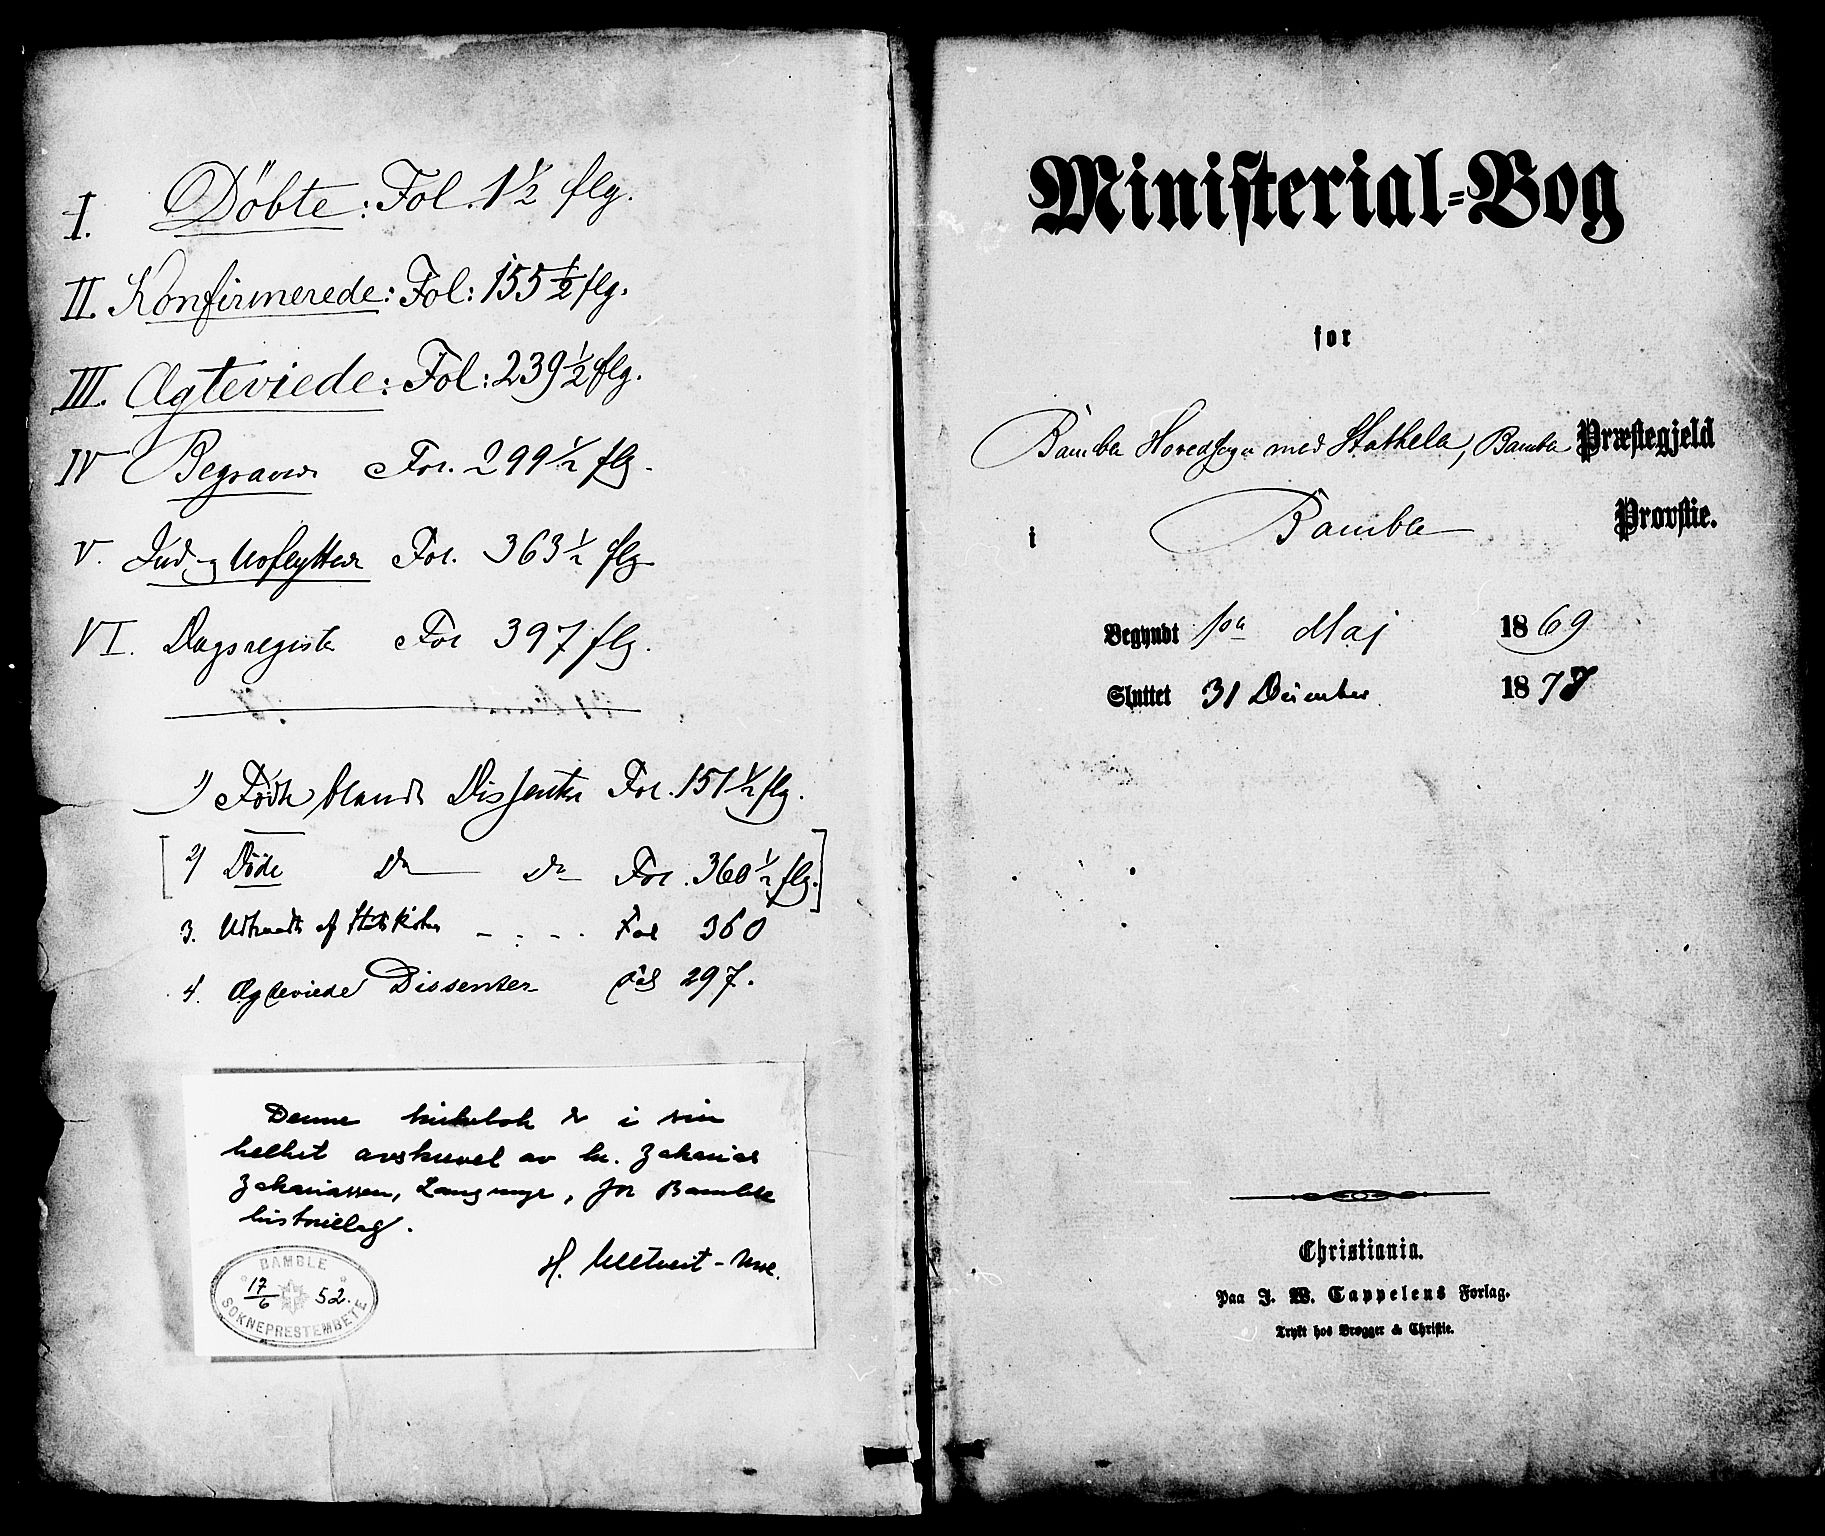 I. Döbte: Fol. 1½ flg.
II. Konfirmerede: Fol: 155½ flg.
III. Ægteviede: Fol: 239½ flg.
IV Begravede Fol. 299½ flg.
V. Ind- og Udflyttede Fol. 363½ flg.
VI. Dagsregister Fol 397 flg.
1) Födte blandt Dissenter Fol. 151½ flg.
[2) Döde Do Do Fol. 360½ flg.]
3. Udtraadte af Statskirken - - - - Fol 360
4. Ægteviede Dissenter Fol 297.
Denne kirkebok er i sin
helhet avskrevet av hr. Zakarias
Zakariassen, Langmyr, for Bamble
historielag.
H. Ulltveit-Moe.
BAMBLE
17/6 52.
SOKNEPRESTEMBETE
Ministerial-Bog
for
Bamble Hovedsogn med Stathelle, Bamble Præstegjeld
i Bamble Provstie.
Begyndt 1ste Maj 1869
Sluttet 31 December 1877
Christiania.
Paa J. W. Cappelens Forlag.
Trykt hos Brøgger & Christie.